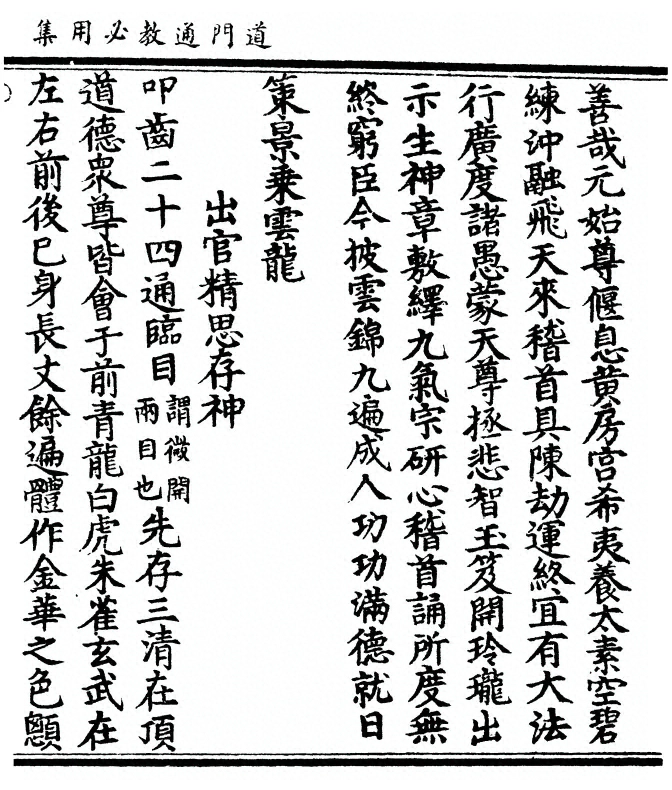 道門通教必用集
善哉元始尊偃息黄房宫希夷養太素空碧
練沖融飛天來稽首具陳劫運終宜有大法
行廣度諸愚蒙天尊拯悲智玉笈開玲瓏出
示生神章敷繹九氣宗研心稽首誦所度無
終窮臣今披雲錦九遍成人功功滿德就日
策景乗雲龍
出官精思存神
叩齒二十四通臨目謂微開兩目也先存三清在頂
道德衆尊皆會于前青龍白虎朱雀玄武在
左右前後巳身長丈餘遍體作金華之色顋